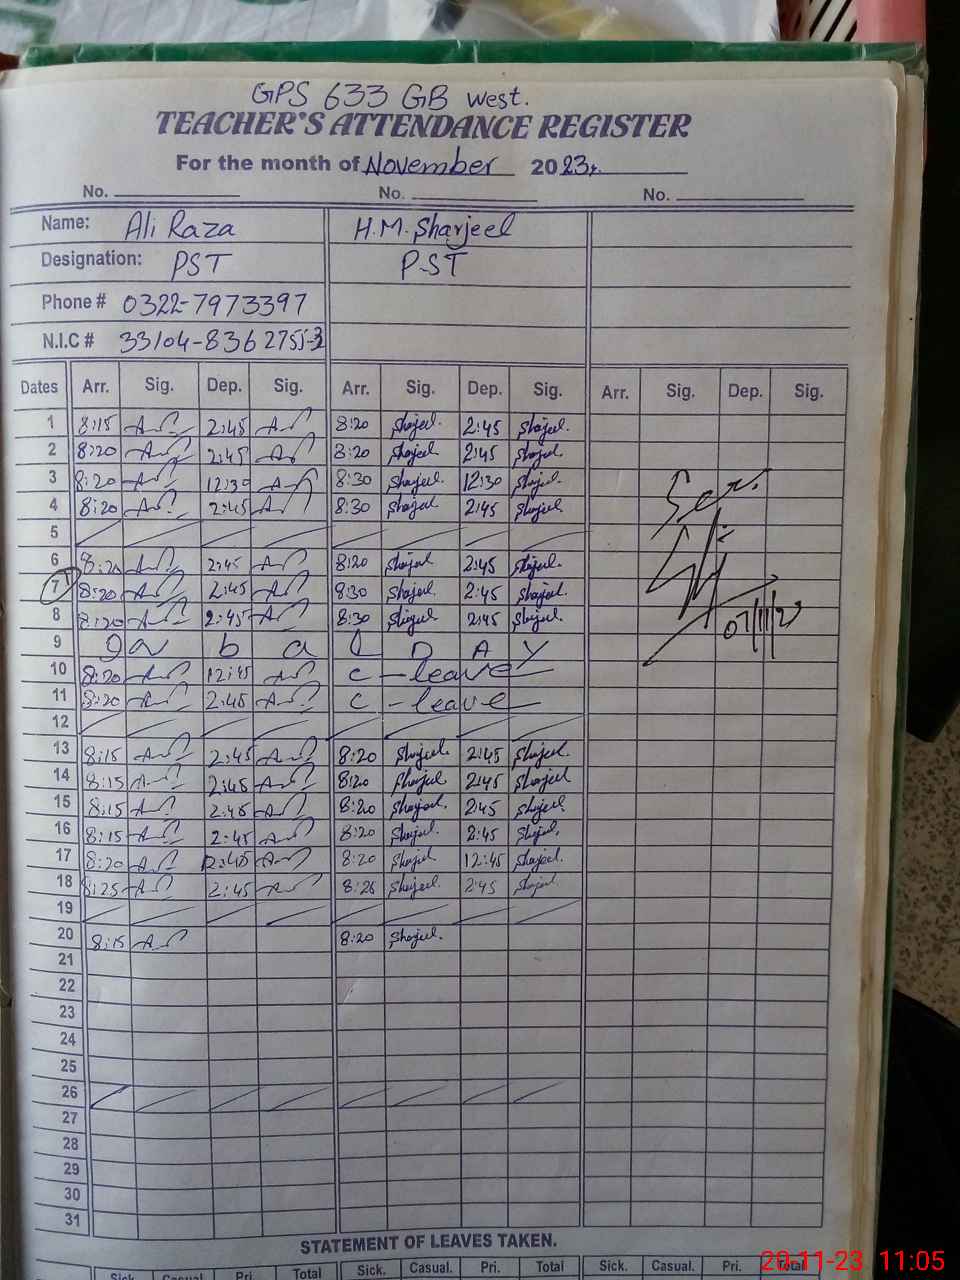 GPS 633 GB west.
TEACHER'S ATTENDANCE REGISTER
For the month of November 2023
No. No. No.
Name: Ali Raza H.M. Sharjeel
Designation: PST PST
Phone # 0322-7973397
N.I.C # 33104-8362755-3
Dates Arr. Sig. Dep. Sig. Arr. Sig. Dep. Sig. Arr. Sig. Dep. Sig.
1 8:15 2:45 8:20 Sharjeel 2:45 Sharjeel
2 8:20 2:45 8:20 Sharjeel 2:45 Sharjeel
3 8:20 12:30 8:30 Sharjeel 12:30 Sharjeel
4 8:20 2:45 8:30 Sharjeel 2:45 Sharjeel
5
6 8:20 2:45 8:20 Sharjeel 2:45 Sharjeel
7 8:20 2:45 8:30 Sharjeel 2:45 Sharjeel
8 8:20 2:45 8:30 Sharjeel 2:45 Sharjeel
07/11/23
9 b a l D A Y
10 8:20 12:45 C-leave
11 8:20 2:45 C-leave
12
13 8:15 2:45 8:20 Sharjeel 2:45 Sharjeel
14 8:15 2:45 8:20 Sharjeel 2:45 Sharjeel
15 8:15 2:45 8:20 Sharjeel 2:45 Sharjeel
16 8:15 2:45 8:20 Sharjeel 2:45 Sharjeel
17 8:20 12:45 8:20 Sharjeel 12:45 Sharjeel
18 8:25 2:45 8:26 Sharjeel 2:45 Sharjeel
19
20 8:15 8:20 Sharjeel
21
22
23
24
25
26
27
28
29
30
31
STATEMENT OF LEAVES TAKEN.
Sick. Casual. Pri. Total Sick. Casual. Pri. Total Sick. Casual. Pri. Total
20-11-23 11:05